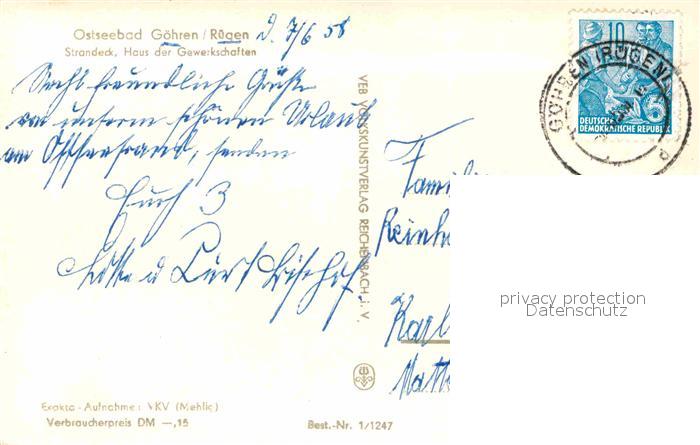 Ostseebad Göhren / Rügen D. 7/6 58
Strandeck, Haus der Gewerkschaften
Recht freundliche Grüße
von unserem schönen Urlaub
am Ostseestrand, senden
Euch 3
u Curt Bischof.
VEB VOLKSKUNSTVERLAG REICHENBACH i. V.
10
GÖHREN (RÜGEN)
DEUTSCHE
DEMOKRATISCHE REPUBLIK
Familie
privacy protection
Datenschutz
Exakta-Aufnahme: VKV (Mehlig)
Verbraucherpreis DM —,15
Best.-Nr. 1/1247